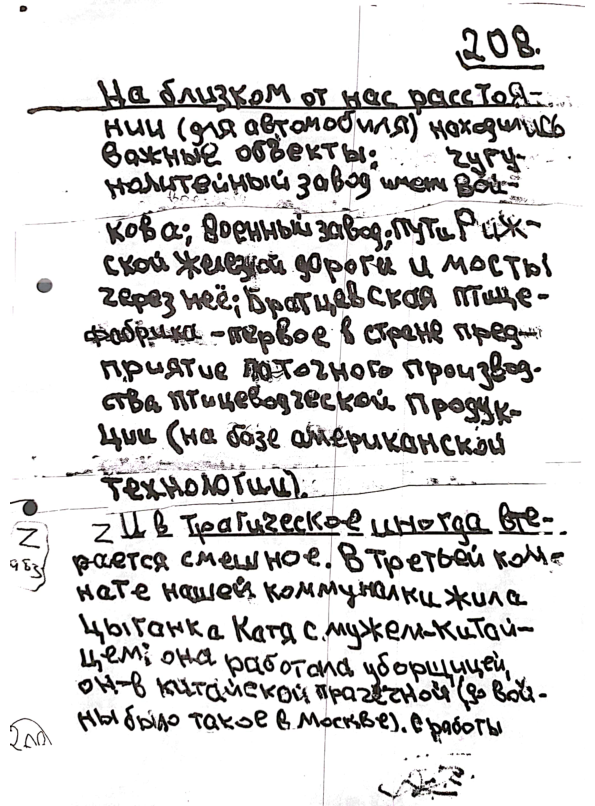 208.
На близком от нас расстоя-
нии (для автомобиля) находились
важные объекты: чугу-
налитейный завод имени Вой-
кова; военный завод; пути Риж-
ской железной дороги и мосты
через неё; Братцевская птице-
фабрика - первое в стране пред-
приятие поточного производ-
ства птицеводческой продук-
ции (на базе американской
технологии).
Z И в трагическое иногда вте-
рается смешное. В третьей ком-
нате нашей коммуналки жила
цыганка Катя с мужем-китай-
цем; она работала уборщицей,
он-в китайской прачечной (до вой-
ны было такое в Москве). С работы